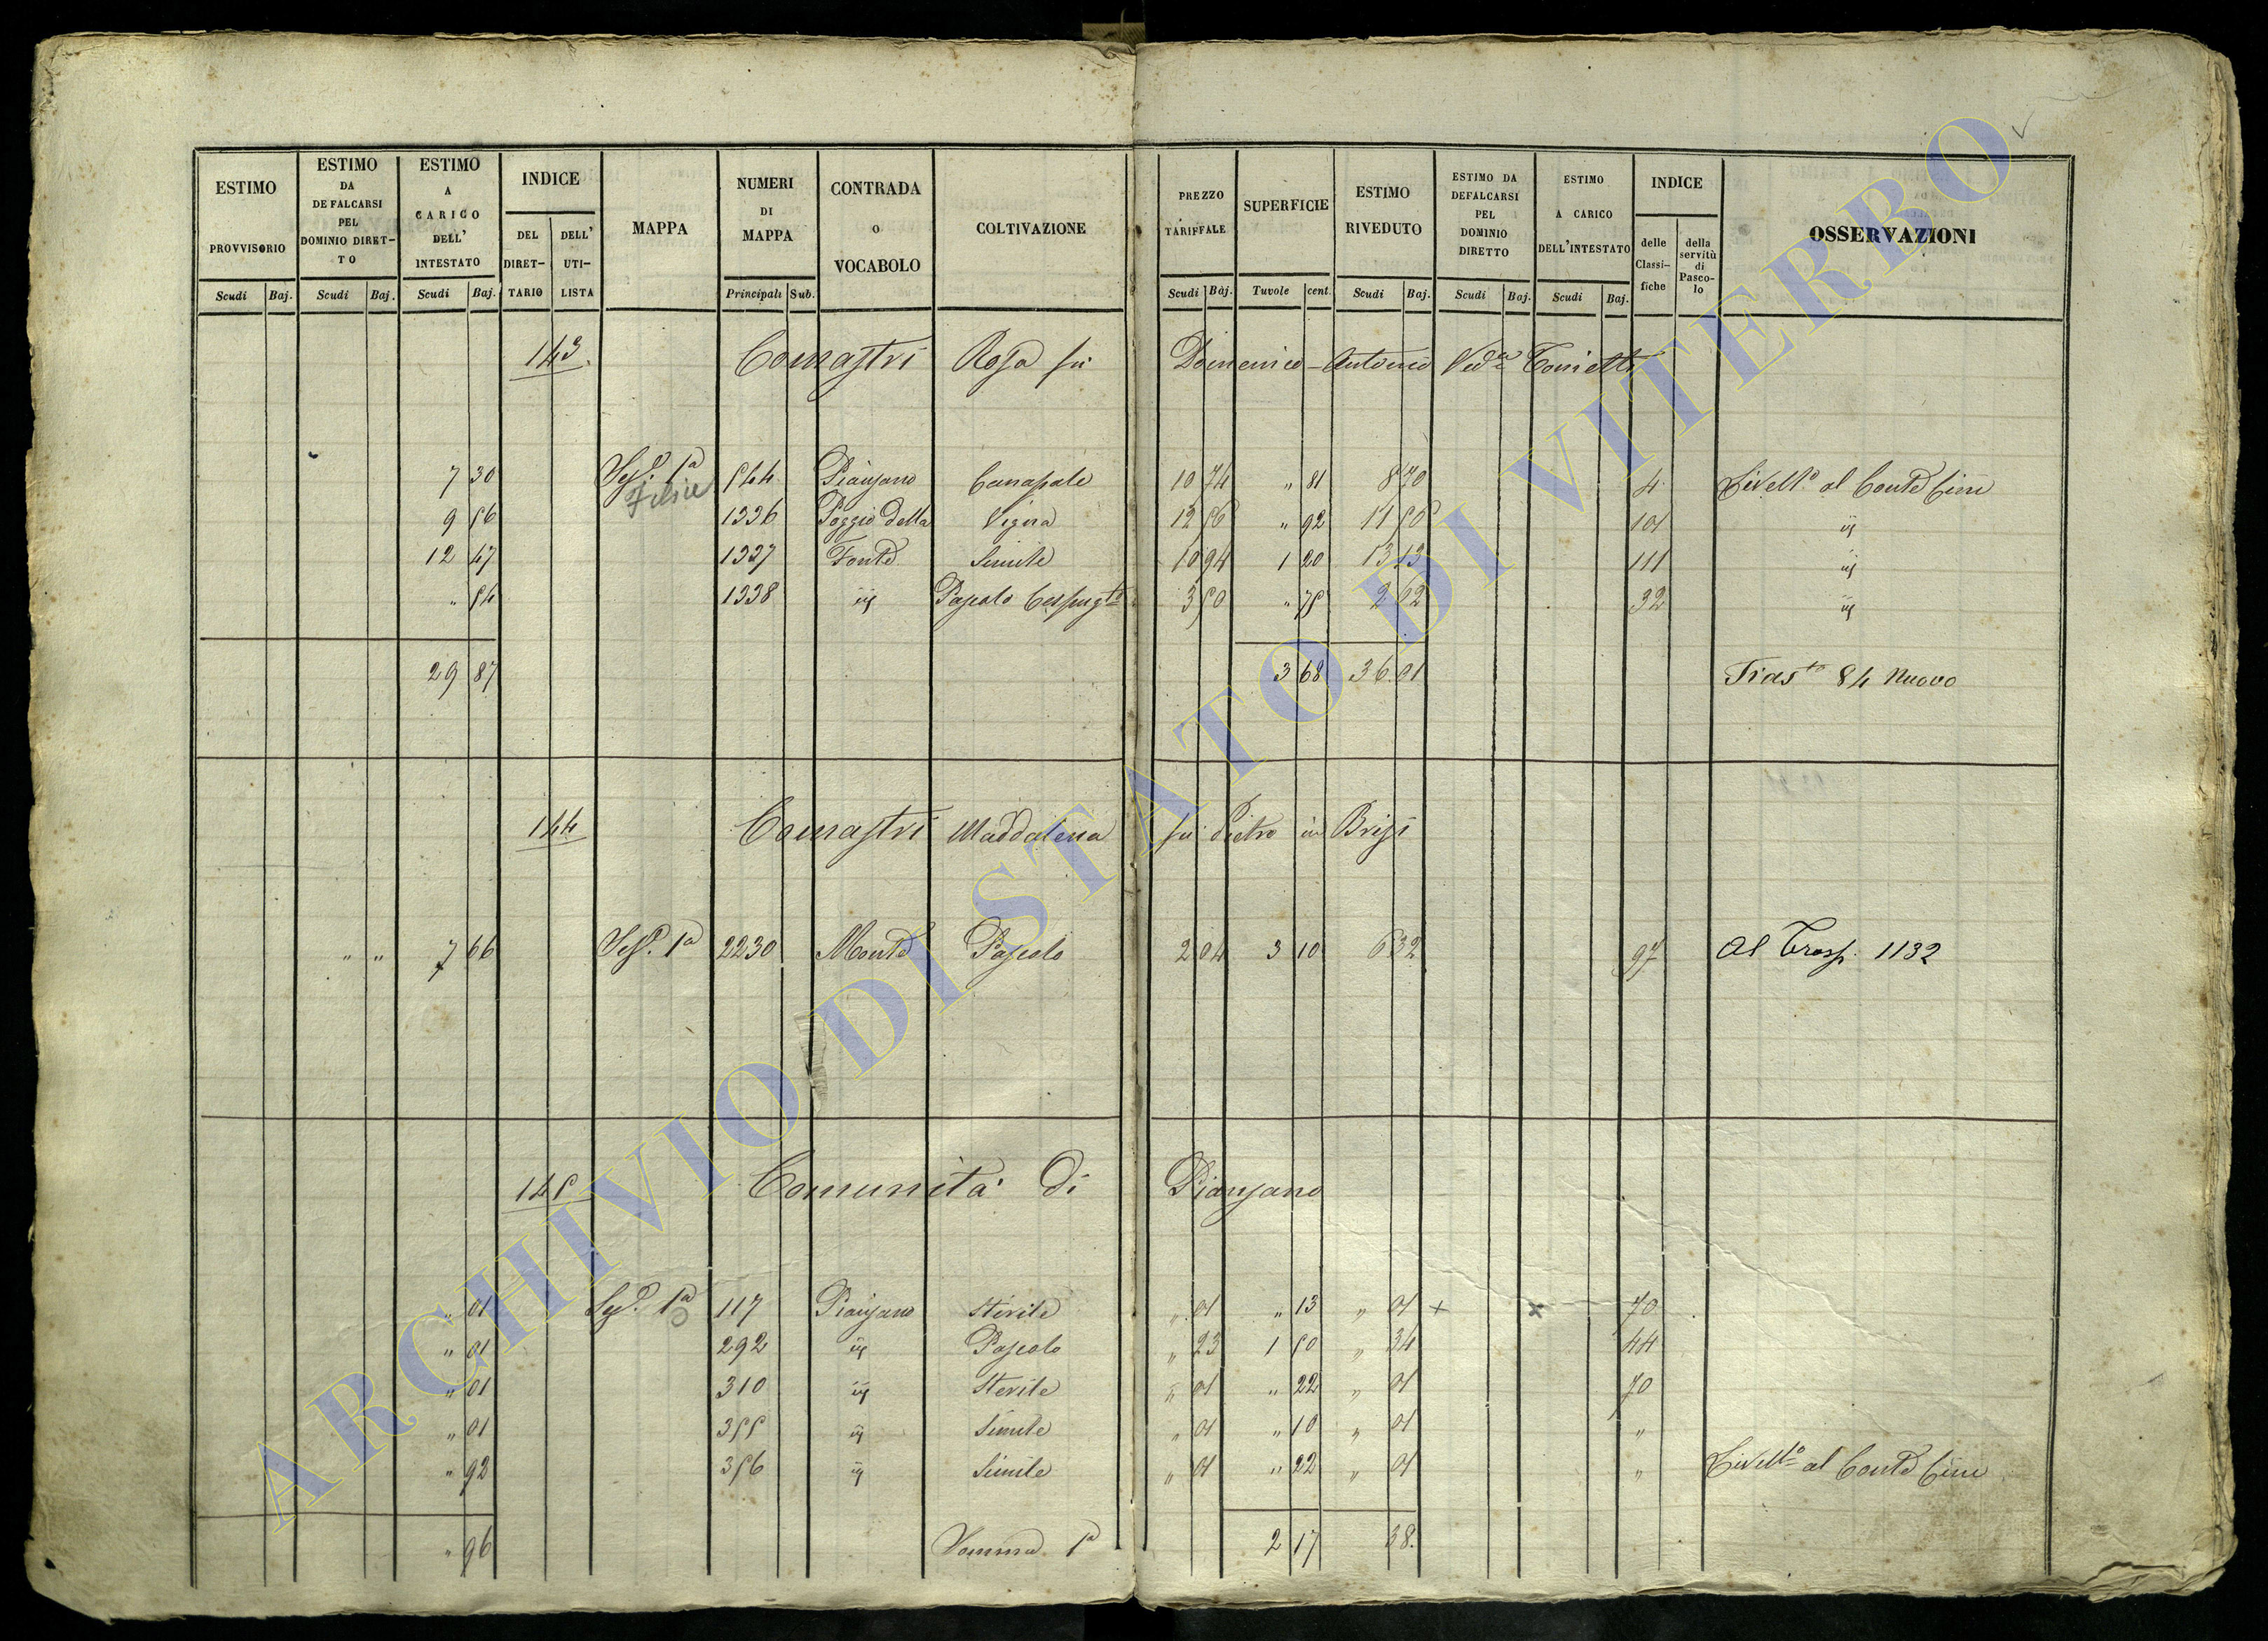 ESTIMO PROVVISORIO Scudi Baj. | ESTIMO DA DEFALCARSI PEL DOMINIO DIRET-TO Scudi Baj. | ESTIMO A CARICO DELL' INTESTATO Scudi Baj. | INDICE DEL DIRET-TARIO DELL' UTI-LISTA | MAPPA | NUMERI DI MAPPA Principali Sub. | CONTRADA O VOCABOLO | COLTIVAZIONE | PREZZO TARIFFALE Scudi Baj. | SUPERFICIE Tavole cent. | ESTIMO RIVEDUTO Scudi Baj. | ESTIMO DA DEFALCARSI PEL DOMINIO DIRETTO Scudi Baj. | ESTIMO A CARICO DELL'INTESTATO Scudi Baj. | INDICE delle Classi-fiche della servitù di Pasco-lo | OSSERVAZIONI
143. Comastri Rosa fu Domenico-Antonio Ved.a
7 30 Sez. 1a 544 Pianzano Canapale 10 74 " 81 8 70 4 Livell.o al Conte Cini
9 56 1336 Poggio della Vigna 12 56 " 92 11 56 101 iij
12 47 1337 Fonte Simile 10 94 1 20 13 13 111 iij
" 54 1338 iij Pascolo Cespugto 3 50 " 75 2 62 32 iij
29 87 3 68 36 01 Trasto 84 Nuovo
144 Comastri Maddalena fu Pietro in Brizi
" " 7 66 Sez. 1a 2230 Monte Pascolo 2 04 3 10 6 32 97 Al Trasp. 1132
145 Comunità di Pianzano
" 01 Sez. 1a 117 Pianzano Sterile " 01 " 13 " 01 + x 70
" 01 292 iij Pascolo " 23 1 50 " 34 44
" 01 310 iij Sterile " 01 " 22 " 01 70
" 01 355 iij Simile " 01 " 10 " 01 "
" 92 356 iij Simile " 01 " 22 " 01 " Livell.o al Conte Cini
" 96 Somma 1a 2 17 38.
ARCHIVIO DI STATO DI VITERBO